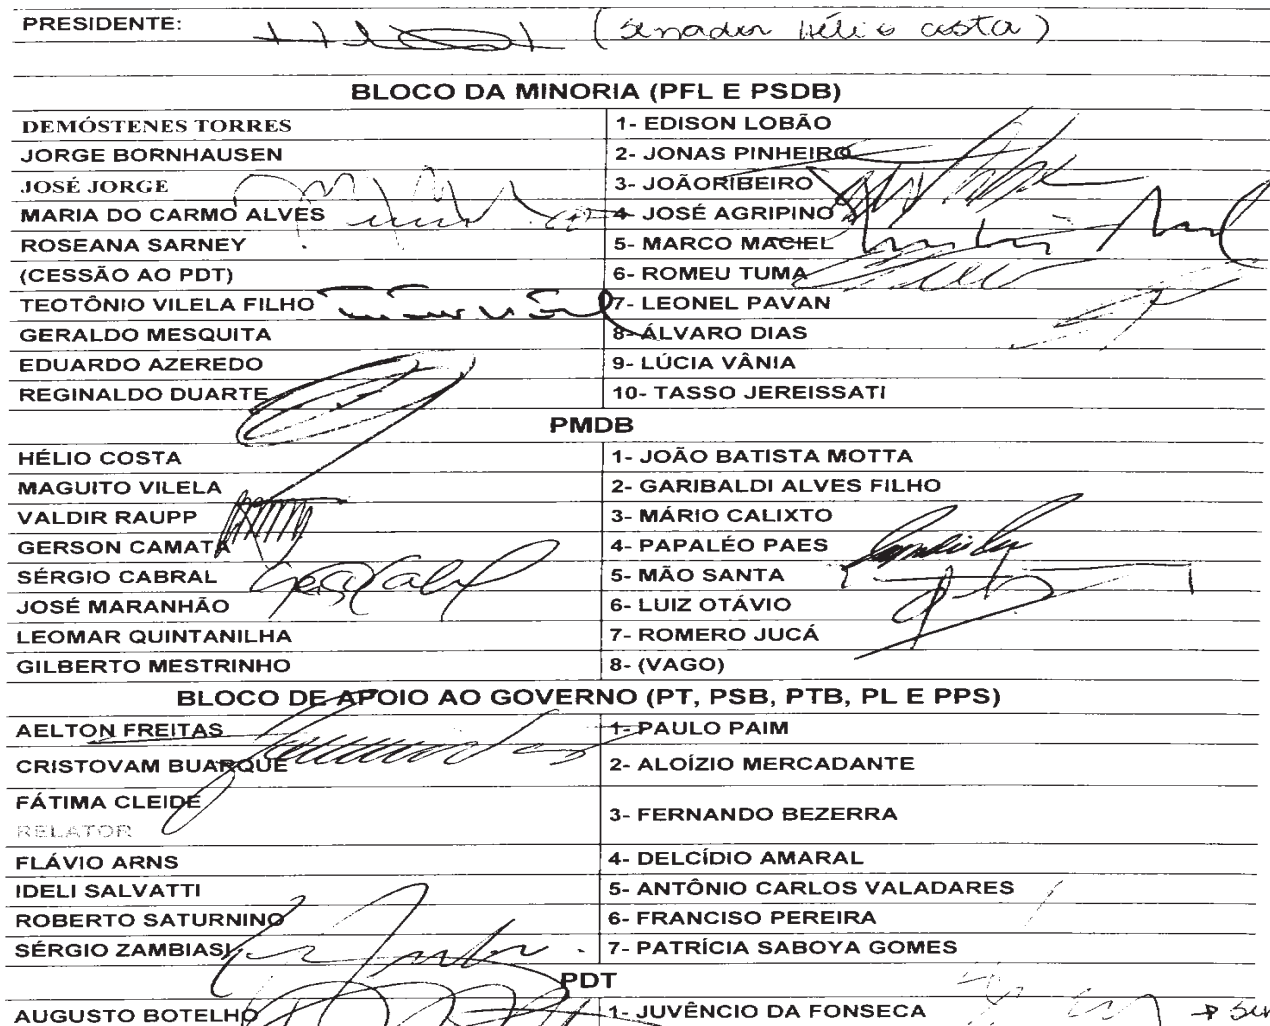 PRESIDENTE: (Senador Hélio Costa)
BLOCO DA MINORIA (PFL E PSDB)
DEMÓSTENES TORRES 1- EDISON LOBÃO
JORGE BORNHAUSEN 2- JONAS PINHEIRO
JOSÉ JORGE 3- JOÃORIBEIRO
MARIA DO CARMO ALVES 4- JOSÉ AGRIPINO
ROSEANA SARNEY 5- MARCO MACIEL
(CESSÃO AO PDT) 6- ROMEU TUMA
TEOTÔNIO VILELA FILHO 7- LEONEL PAVAN
GERALDO MESQUITA 8- ÁLVARO DIAS
EDUARDO AZEREDO 9- LÚCIA VÂNIA
REGINALDO DUARTE 10- TASSO JEREISSATI
PMDB
HÉLIO COSTA 1- JOÃO BATISTA MOTTA
MAGUITO VILELA 2- GARIBALDI ALVES FILHO
VALDIR RAUPP 3- MÁRIO CALIXTO
GERSON CAMATA 4- PAPALÉO PAES
SÉRGIO CABRAL 5- MÃO SANTA
JOSÉ MARANHÃO 6- LUIZ OTÁVIO
LEOMAR QUINTANILHA 7- ROMERO JUCÁ
GILBERTO MESTRINHO 8- (VAGO)
BLOCO DE APOIO AO GOVERNO (PT, PSB, PTB, PL E PPS)
AELTON FREITAS 1- PAULO PAIM
CRISTOVAM BUARQUE 2- ALOÍZIO MERCADANTE
FÁTIMA CLEIDE
RELATOR 3- FERNANDO BEZERRA
FLÁVIO ARNS 4- DELCÍDIO AMARAL
IDELI SALVATTI 5- ANTÔNIO CARLOS VALADARES
ROBERTO SATURNINO 6- FRANCISO PEREIRA
SÉRGIO ZAMBIASI 7- PATRÍCIA SABOYA GOMES
PDT
AUGUSTO BOTELHO 1- JUVÊNCIO DA FONSECA